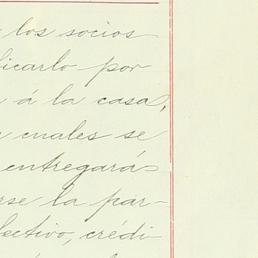 los socios
icarlo por
á la casa,
cuales se
entregará
rse la par-
fectivo, crédi